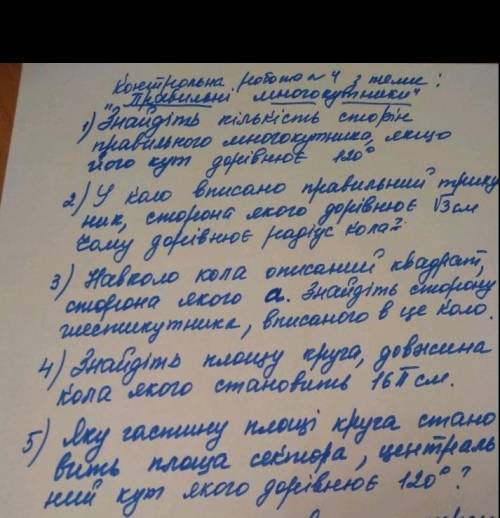 Контрольна робота №4 з теми:
"Правильні многокутники"
1) Знайдіть кількість сторін
правильного многокутника, якщо
його кут дорівнює 120°
2) У коло вписано правильний трику
ник, сторона якого дорівнює √3 см
Чому дорівнює радіус кола?
3) Навколо кола описаний квадрат,
сторона якого a. Знайдіть сторону
шестикутника, вписаного в це коло.
4) Знайдіть площу круга, довжина
кола якого становить 16π см.
5) Яку частину площі круга стано
вить площа сектора, централь
ний кут якого дорівнює 120°?